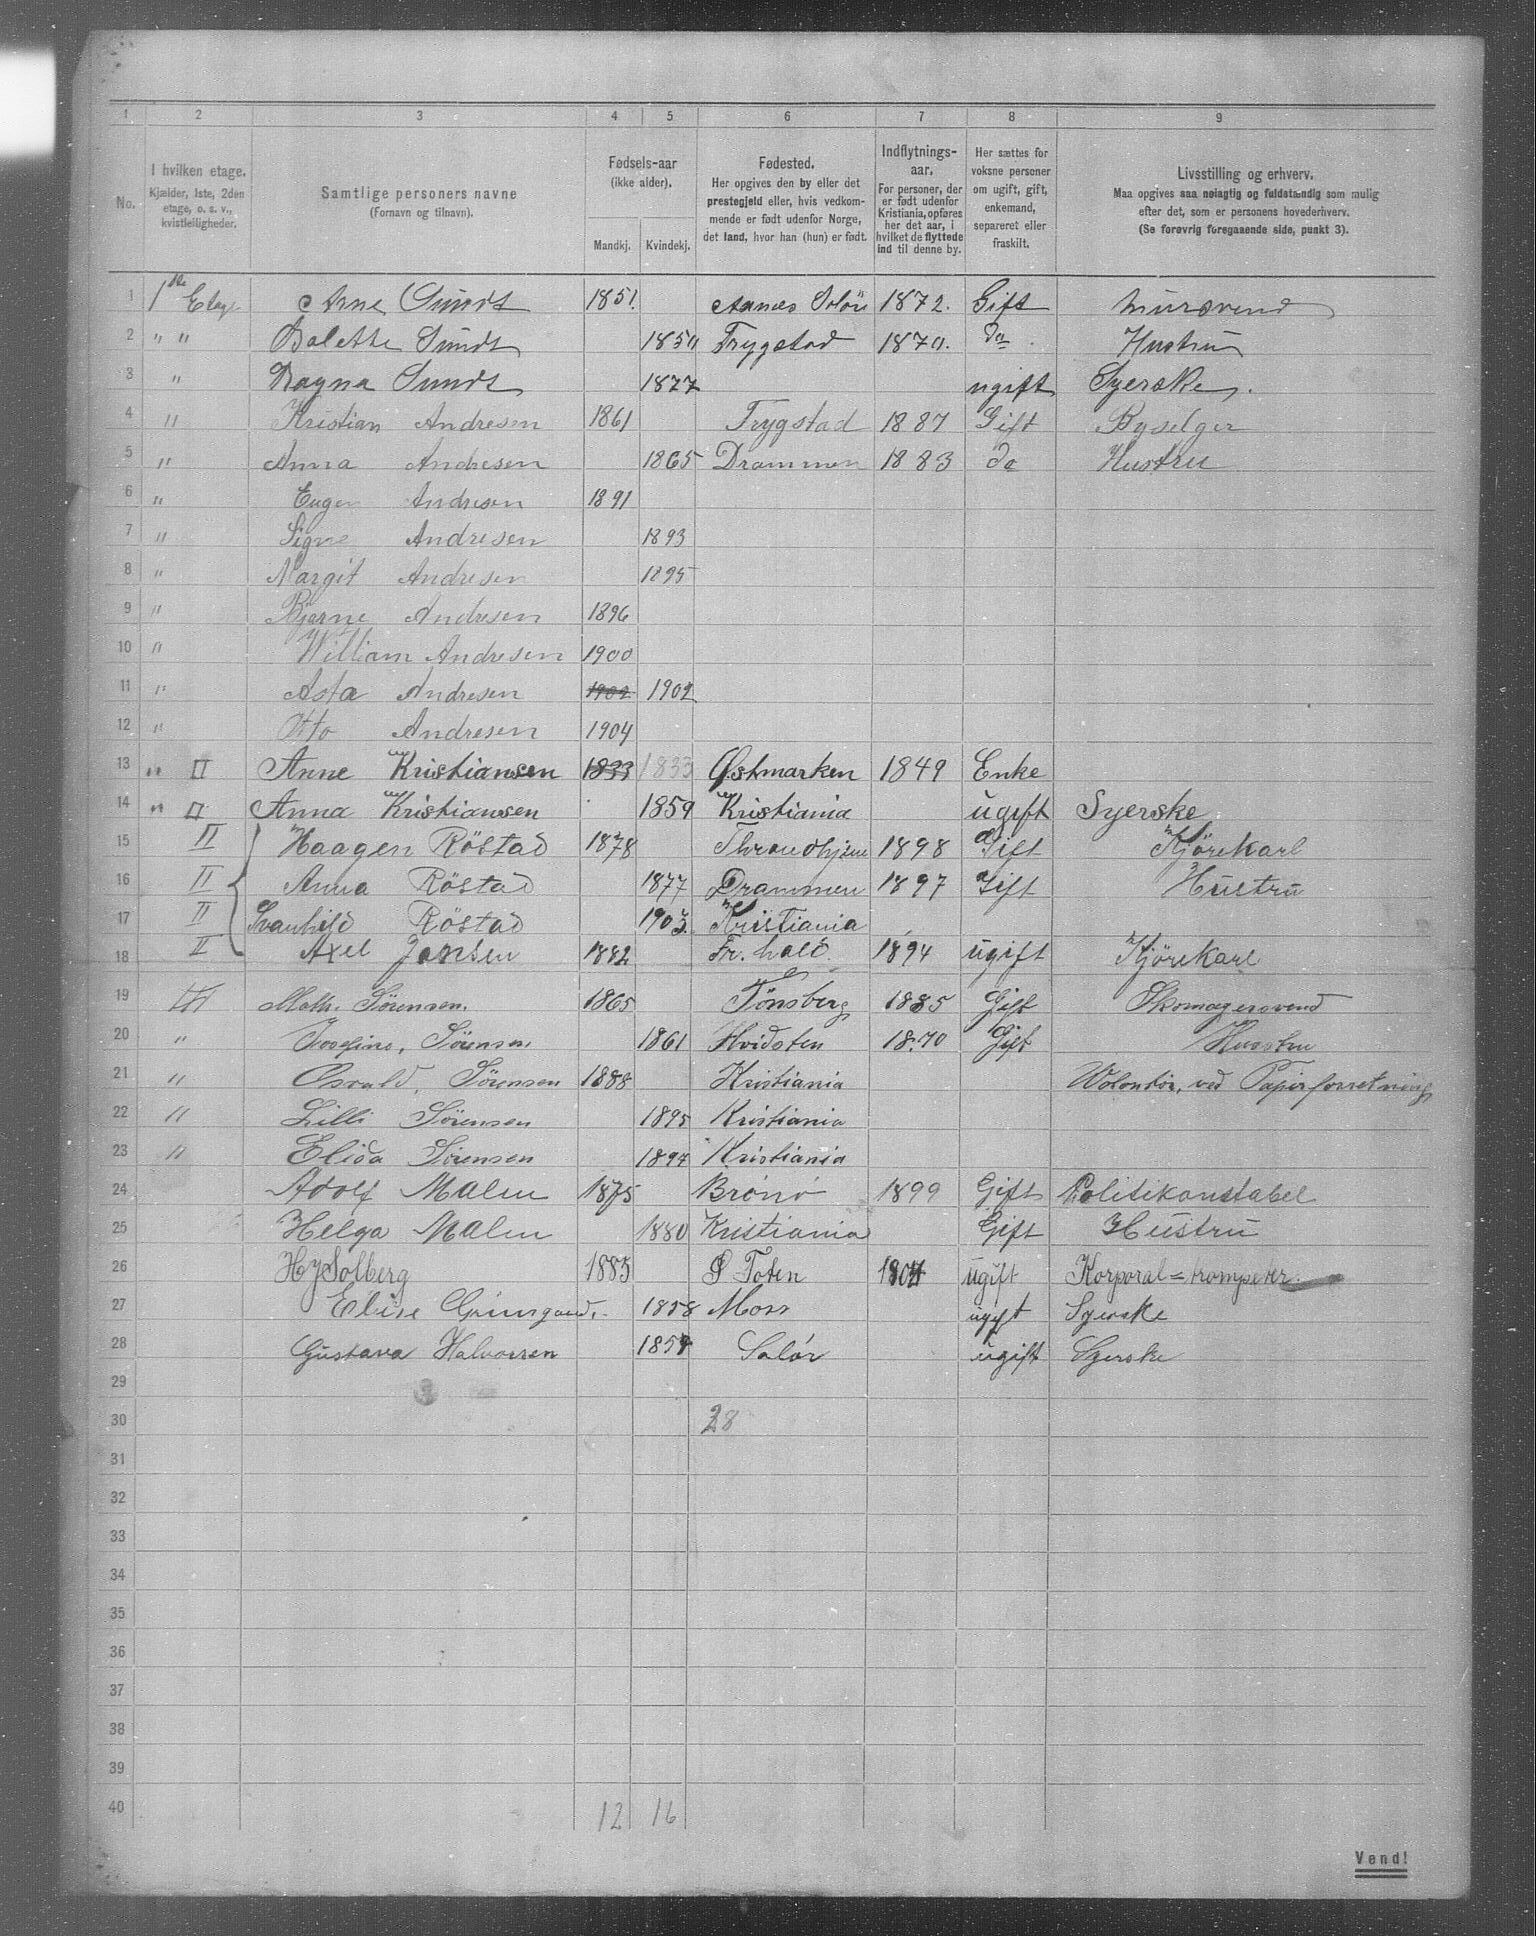 1 2 3 4 5 6 7 8 9
No. I hvilken etage. Kjælder, 1ste, 2den etage, o. s. v., kvistleiligheder. Samtlige personers navne (Fornavn og tilnavn). Fødsels-aar (ikke alder). Mandkj. Kvindekj. Fødested. Her opgives den by eller det prestegjeld eller, hvis vedkommende er født udenfor Norge, det land, hvor han (hun) er født. Indflytnings-aar. For personer, der er født udenfor Kristiania, opføres her det aar, i hvilket de flyttede ind til denne by. Her sættes for voksne personer om ugift, gift, enkemand, separeret eller fraskilt. Livsstilling og erhverv. Maa opgives saa nøiagtig og fuldstændig som mulig efter det, som er personens hovederhverv. (Se forøvrig foregaaende side, punkt 3).
1 1ste Etage Arne Sundt 1851. Aasnes Solør 1872. Gift Mursvend
2 " " Bolette Sundt 1850 Trygstad 1870. do Hustru
3 " Ragna Sundt 1877 ugift Syerske.
4 " Kristian Andresen 1861 Trygstad 1887 Gift Byselger
5 " Anna Andresen 1865 Drammen 1883 do Hustru
6 " Eugen Andresen 1891
7 " Signe Andresen 1893
8 " Margit Andresen 1895
9 " Bjarne Andresen 1896
10 " William Andresen 1900
11 " Asta Andresen 1902 1902
12 " Otto Andresen 1904
13 " II Anne Kristiansen 1833 1833 Østmarken 1849 Enke
14 " II Anna Kristiansen 1859 Kristiania ugift Syerske
15 II Haagen Röstad 1878 Throndhjem 1898 Gift Kjørekarl
16 II Anna Röstad 1877 Drammen 1897 Gift Hustru
17 II Svanhild Röstad 1903. Kristiania
18 II Axel Jansen 1882 Fr. hald. 1894 ugift Kjörekarl
19 III Math. Sørensen. 1865 Tönsberg 1885 Gift Skomagersvend
20 " Josefine, Sørensen, 1861 Hvidsten 1870 Gift Hustru
21 " Osvald, Sørensen 1888 Kristiania Volontör, ved Papirforretning
22 " Lilli Sørensen 1895 Kristiania
23 " Elida Sørensen 1897 Kristiania
24 Adolf Malm 1875 Brónó 1899 Gift Politikonstabel
25 Helga Malm 1880 Kristiania Gift Hustru
26 Hj Solberg 1885 Ø Toten 1904 ugift Korporal=trompeter.
27 Elise Grimsgaard. 1858 Moss ugift Syerske
28 Gustava Halvorsen 1857 Solör ugift Syerske
29
30 28
31
32
33
34
35
36
37
38
39
40 12 16
Vend!